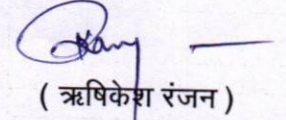 ( ऋषिकेश रंजन )